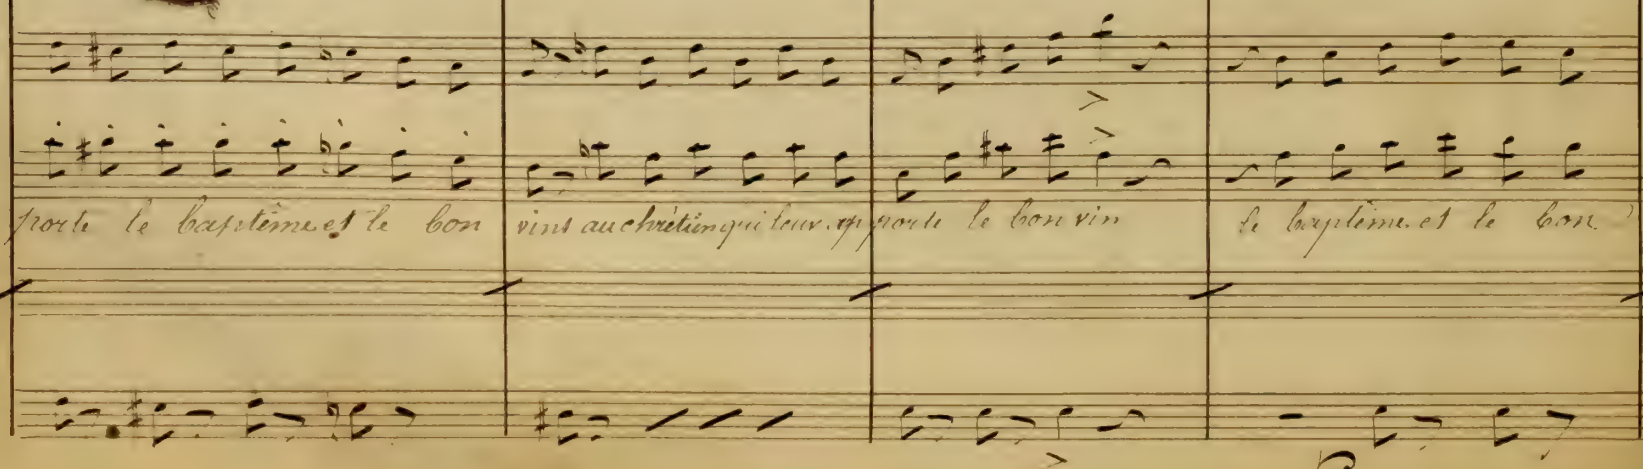 porte le baptême et le bon vins au chrétien qui leur apporte le bon vin le baptême et le bon